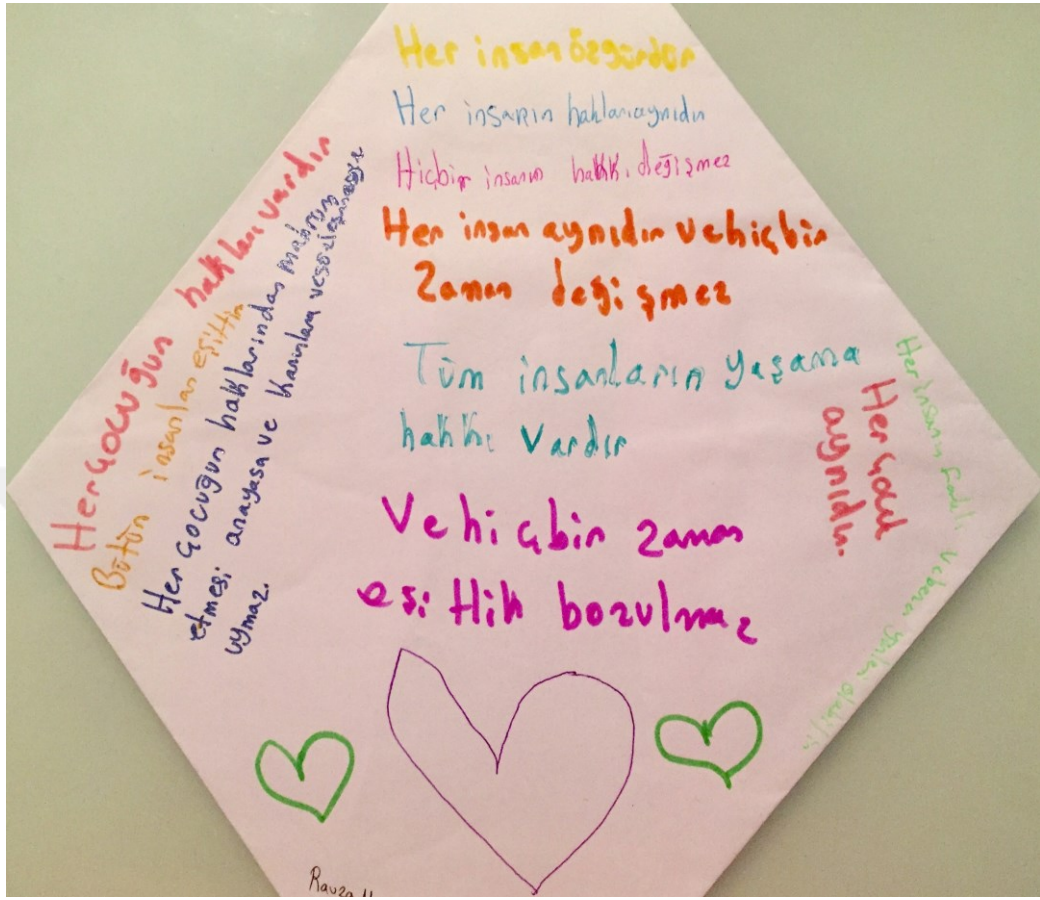 Her insan özgürdür
Her insanın hakları aynıdır
Hiçbir insanın hakkı değişmez
Her insan aynıdır ve hiçbir
zaman değişmez
Tüm insanların yaşama
hakkı vardır
Ve hiçbir zaman
eşitlik bozulmaz
Her çocuğun hakları vardır
Bütün insanlar eşittir
Her çocuğun haklarından mahrum
etmesi anayasa ve kanunlara ve sözleşmesine
uymaz.
Her çocuk
aynıdır.
Her insanın farklı ve benzer yönleri olabilir
Ravza